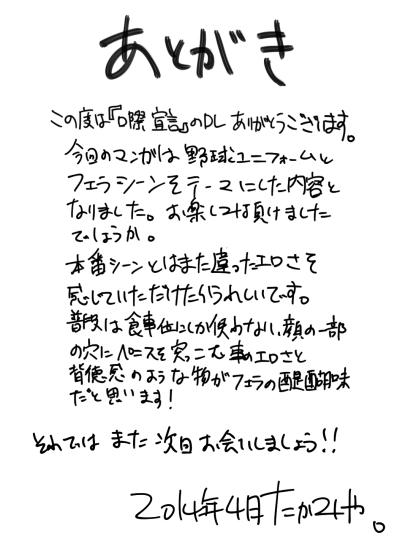 あとがき
この度は『口際宣言』のDLありがとうございます。
今回のマンガは野球ユニフォームと
フェラシーンをテーマにした内容と
なりました。お楽しみ頂けました
でしょうか。
本番シーンとはまた違ったエロさを
感じていただけたらうれしいです。
普段は食事位にしか使わない、顔の一部
の穴にペニスを突っこむ事のエロさと
背徳感のような物がフェラの醍醐味
だと思います!
それでは また 次回 お会いしましょう!!
2014年4月